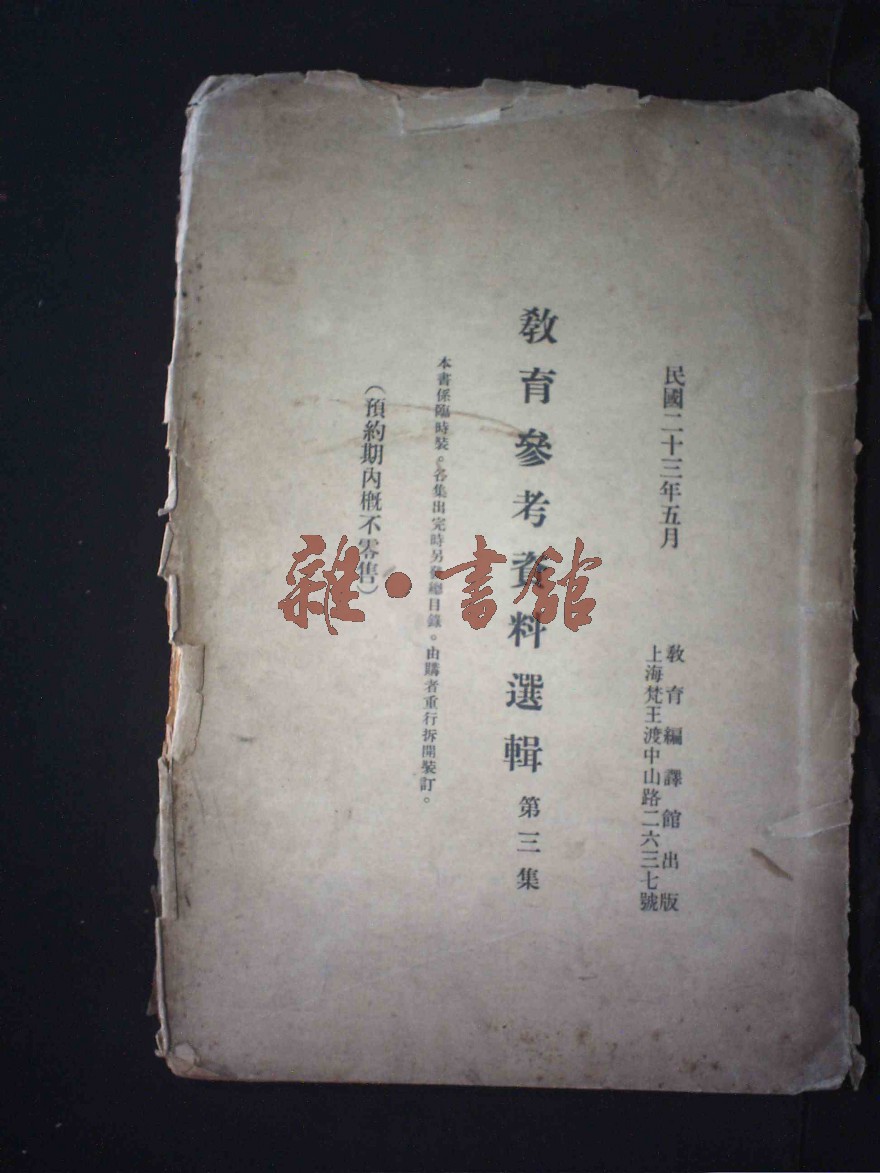 民國二十三年五月
教育編譯館出版
上海梵王渡中山路二六三七號
教育參考資料選輯 第三集
本書係臨時裝。各集出完時另發總目錄。由購者重行拆開裝訂。
（預約期內概不零售）
雜·書館